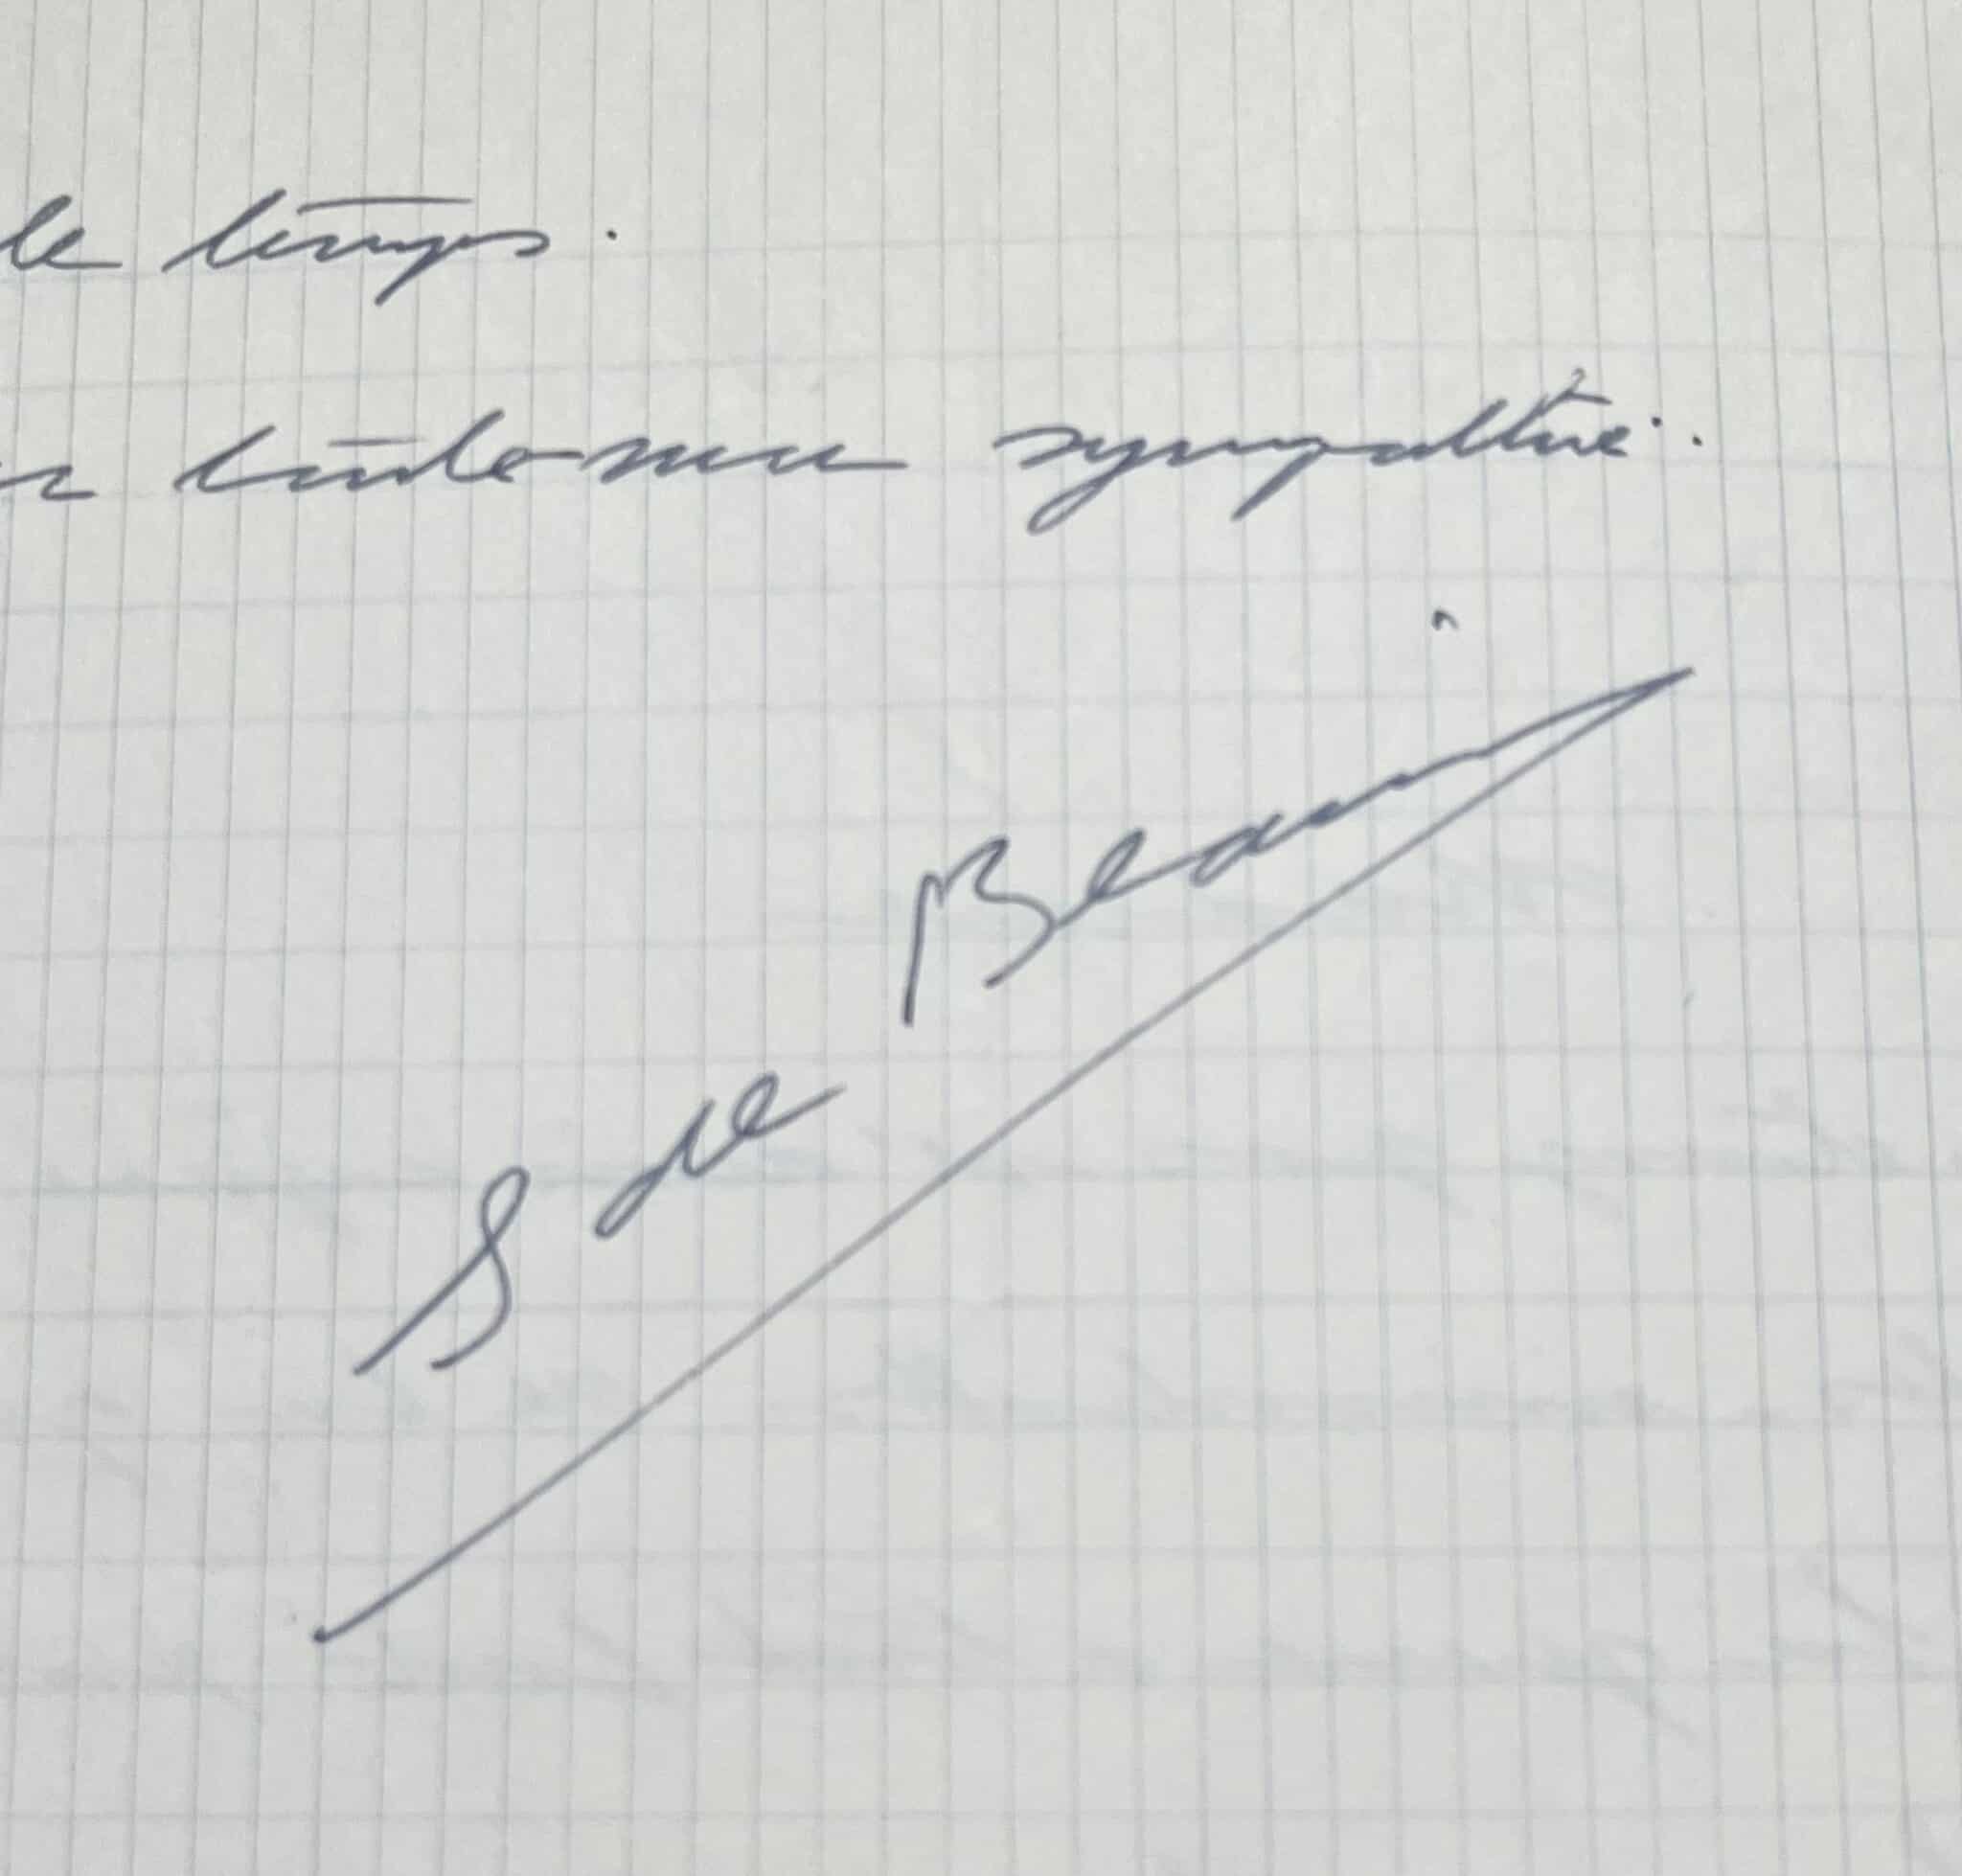 le temps.
toute ma sympathie.
S de Beauvoir